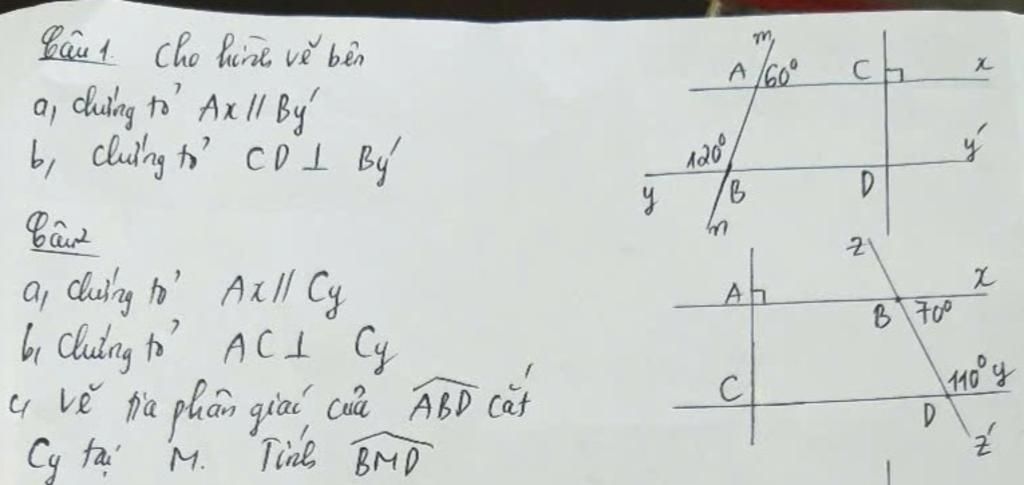 Câu 1. Cho hình vẽ bên
a, chứng tỏ Ax // By'
b, chứng tỏ CD ⊥ By'
m
A 60° C x
120° y'
y B D
n
Câu 2
a, chứng tỏ Ax // Cy
b, chứng tỏ AC ⊥ Cy
c, vẽ tia phân giác của ABD cắt
Cy tại M. Tính BMD
z
A x
B 70°
C 110° y
D
z'